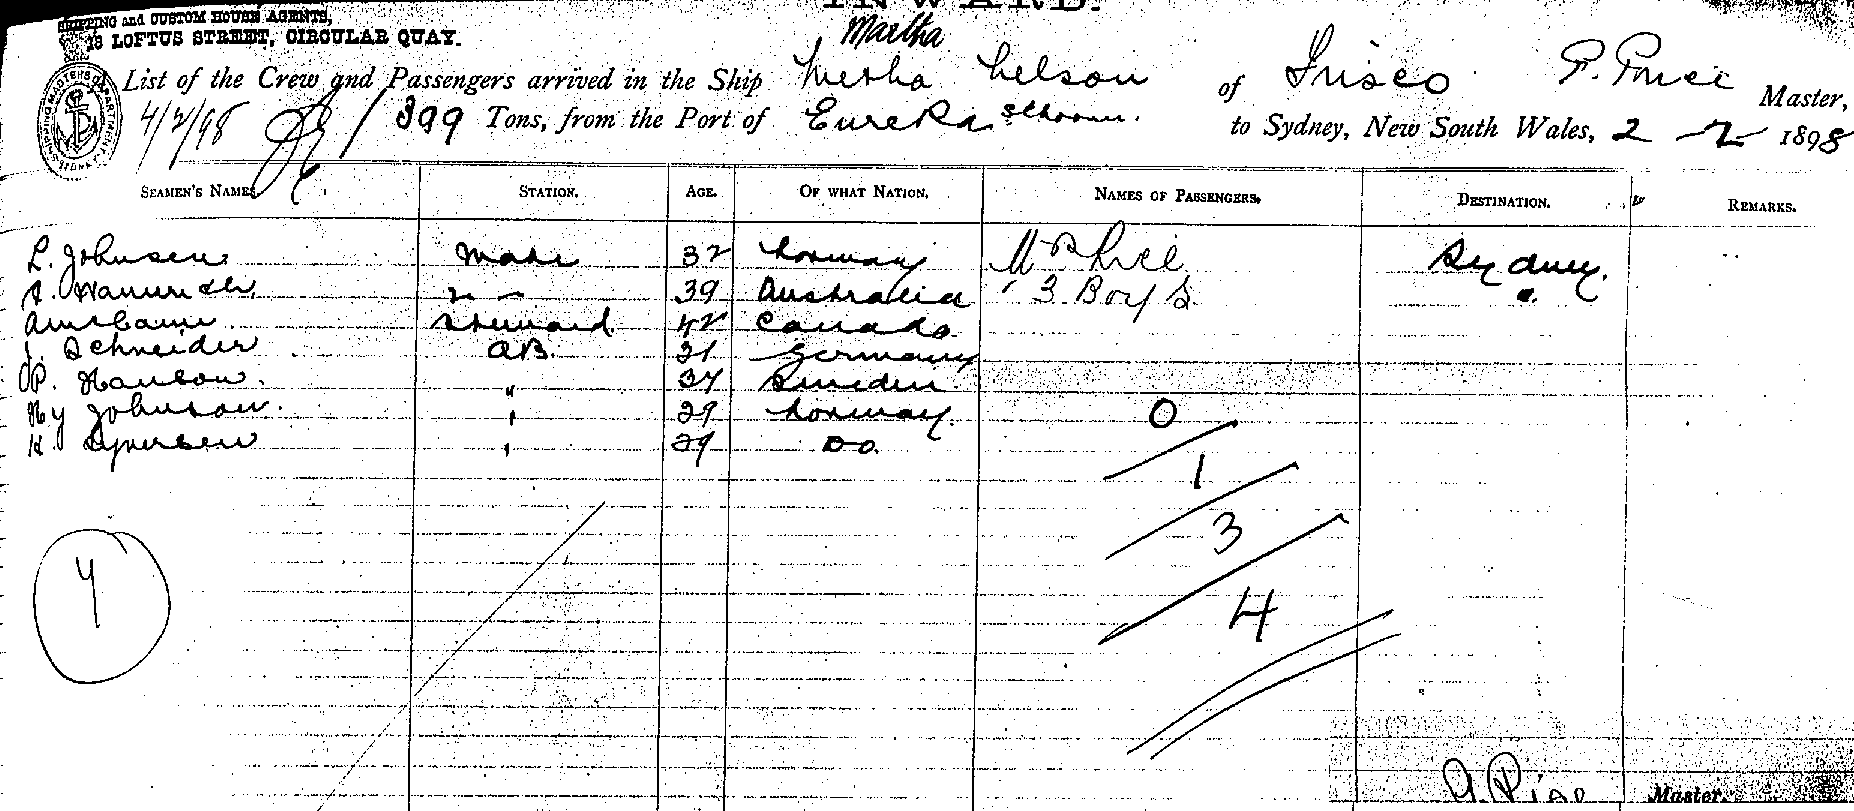 INWARD.
SHIPPING and CUSTOM HOUSE AGENTS,
13 LOFTUS STREET, CIRCULAR QUAY.
Martha
List of the Crew and Passengers arrived in the Ship Metha Nelson of Frisco P. Price Master,
4/2/98 399 Tons, from the Port of Eureka Schooner. to Sydney, New South Wales, 2 - 2 1898
SEAMEN'S NAMES. STATION. AGE. OF WHAT NATION. NAMES OF PASSENGERS. DESTINATION. REMARKS.
L. Johnsen Mate 32 Norway Mrs Price Sydney.
A. 2 - 39 Australia 3 Boys "
Steward 42 Canada
J. Schneider AB. 21 Germany
P. Hanson. " 34 Sweden
Hy Johnson. " 29 Norway. 0
H. Syversen " 29 Do.
1
3
4
4
Master.